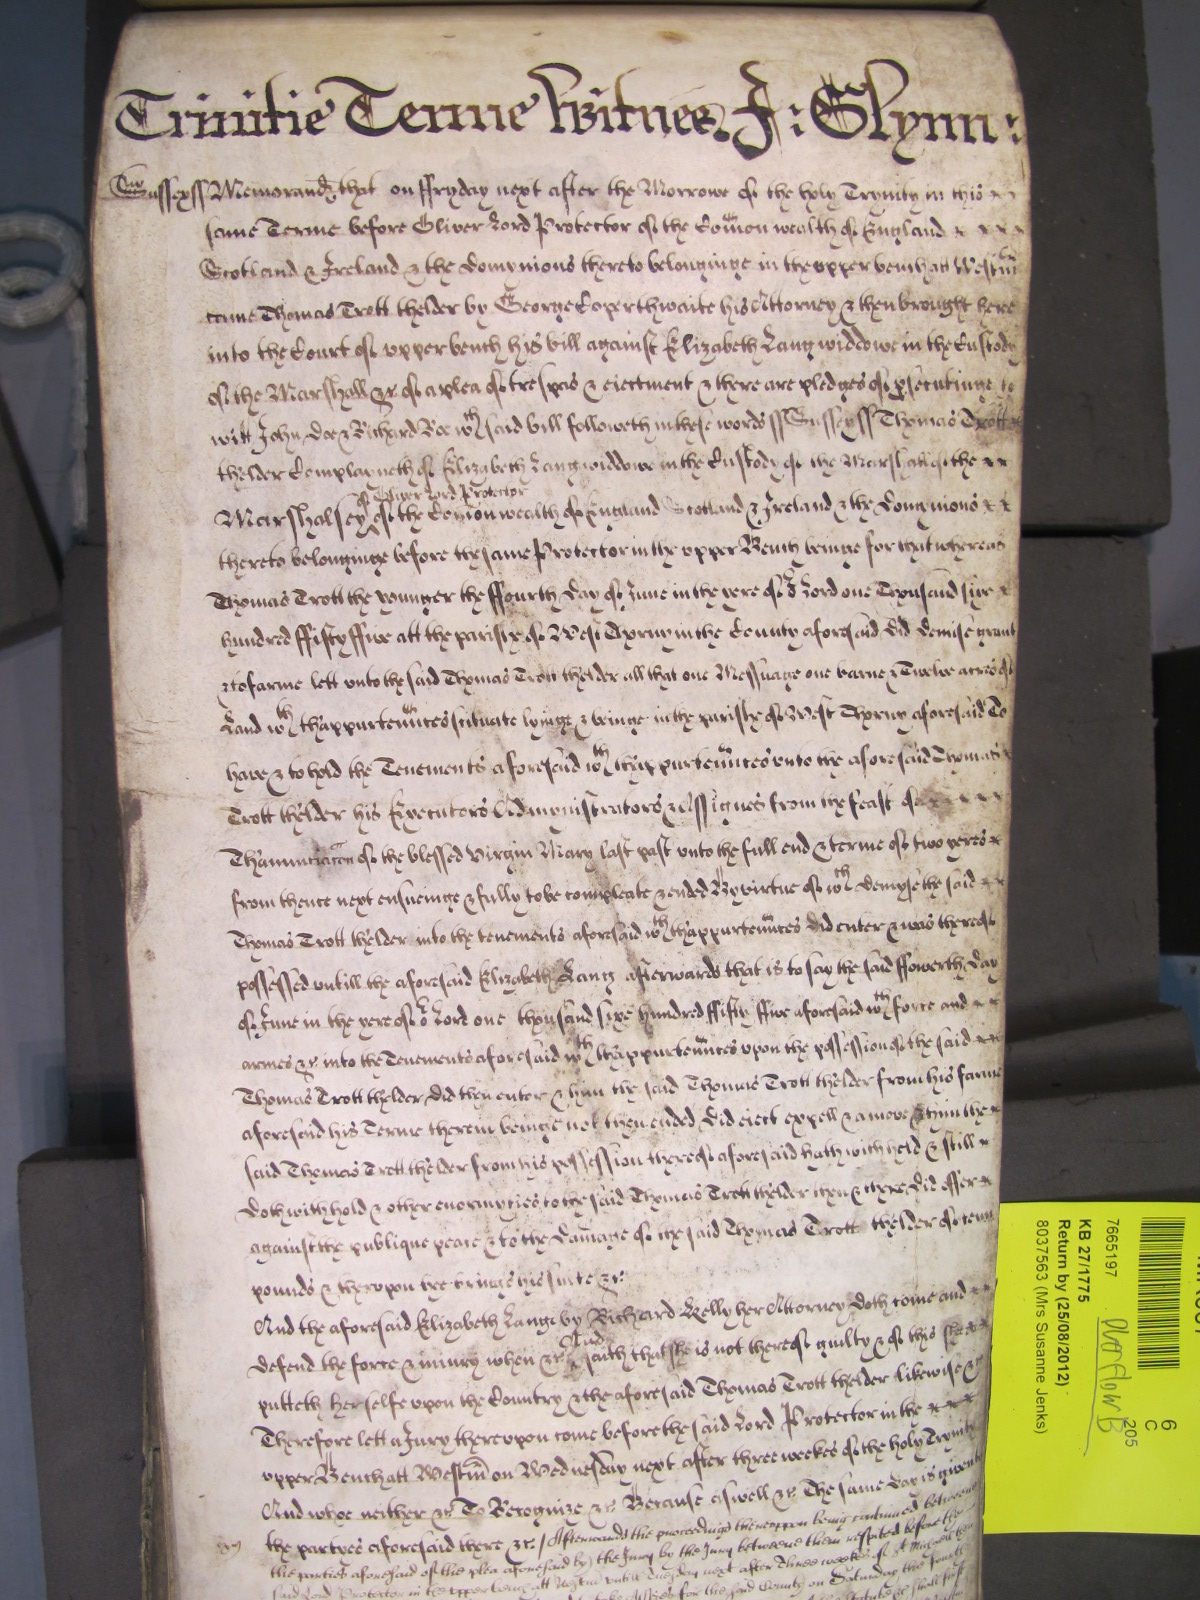 Trinitie Terme Witnes J: Glynn:
Sussex ss Memorand that on ffryday next after the Morrowe of the holy Trynity in this
same Terme before Oliver Lord Protector of the Comon wealth of England
Scotland & Ireland & the domynions thereto belonginge in the upper bench att Westm
came Thomas Trott thelder by George Coperthwaite his Attorney & then brought here
into the Court of upper bench his bill against Elizabeth Lang widdowe in the Custody
of the Marshall &c of a plea of trespas & eiectment & there are pledges of psecutinge to
witt John Doe & Richard Roe wch said bill followeth in these words ss Sussex ss Thomas Trott
thelder Complayneth of Elizabeth Lang widdowe in the Custody of the Marshall of the
of Oliver Lord Protector
Marshalsey of the Comon wealth of England Scotland & Ireland & the Domynions
thereto belonginge before the same Protector in the upper Bench beinge for that whereas
Thomas Trott the younger the ffourth day of June in the yere of or Lord one Thousand sixe
hundred ffifty ffive att the parishe of West Thorny in the County aforesaid did demise grant
& to farme lett unto the said Thomas Trott thelder all that one Messuage one barne & Twelve acres of
Land wth thappurtennces situate lyinge & beinge in the parishe of West Thorny aforesaid To
have & to hold the Tenements aforesaid wth thappurtennces unto the aforesaid Thomas
Trott thelder his Executors Admynistrators & Assignes from the feast of
Thanunciacon of the blessed Virgin Mary last past unto the full end & terme of two yeres
from thence next ensueinge & fully to be compleate & ended By virtue of wch demyse the said
Thomas Trott thelder into the tenements aforesaid wth thappurtennces did enter & was thereof
possessed untill the aforesaid Elizabeth Lang afterwards that is to say the said ffowerth day
of June in the yere of or Lord one thousand sixe hundred ffifty ffive aforesaid wth force and
armes &c into the Tenements aforesaid wth thappurtennces upon the possession of the said
Thomas Trott thelder did then enter & him the said Thomas Trott thelder from his farme
aforesaid his Terme therein beinge not then ended did eiect expell & amove & him the
said Thomas Trott thelder from his possession thereof aforesaid hath with held & still
doth with hold & other enormyties to the said Thomas Trott thelder then & there did offer
against the publique peace & to the damage of the said Thomas Trott thelder of tenn
pounds & thereupon hee brings his suite &c
And the aforesaid Elizabeth Lange by Richard Kelly her Attorney doth come and
And
defend the force & iniury when &c saith that she is not thereof guilty & of this she
putteth herselfe upon the Country & the aforesaid Thomas Trott thelder likewise &c
Therefore lett a Jury thereupon come before the said Lord Protector in the
upper Bench att Westm on Wednesday next after three weekes of the holy Trynity
And whoe neither &c To Recognize &c Because aswell &c The same day is given to
the partyes aforesaid there &c / Afterwards the proceedings thereuppon being continued betweene
the parties aforesaid of the plea aforesaid by the Jury by the Jury betweene them respited before the
said Lord Protector in the upper bench att Westm untill Tuesday next after Three weekes of St Michael then
Assizes for the said County on Saturday the fourth
7665197
KB 27/1775
Return by (25/08/2012)
8037563 (Mrs Susanne Jenks)
6
C
205